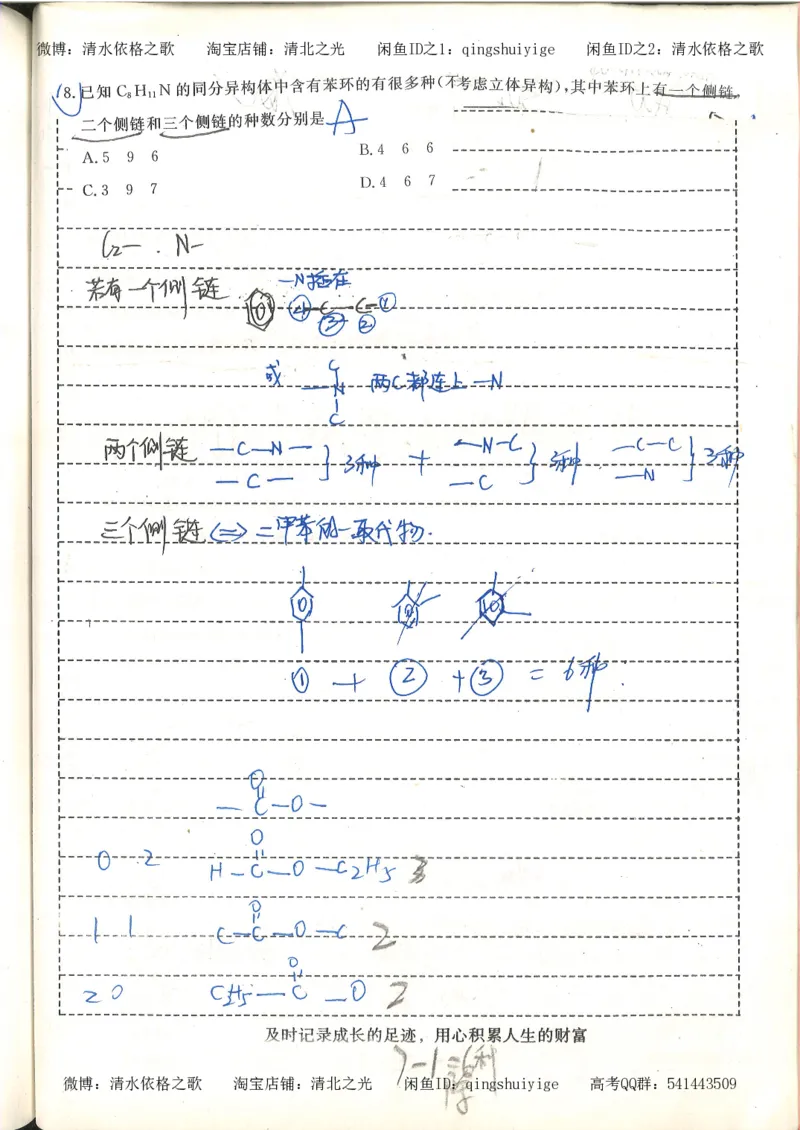 微博：清水依格之歌 淘宝店铺：清北之光 闲鱼ID之1：qingshuiyige 闲鱼ID之2：清水依格之歌
18.已知 C₈H₁₁N 的同分异构体中含有苯环的有很多种(不考虑立体异构),其中苯环上有一个侧链,
二个侧链和三个侧链的种数分别是 A
A.5 9 6 B.4 6 6
C.3 9 7 D.4 6 7
C₂— . N—
—N插在
若有一个侧链 ④—C—C—①
③ ②
或 C
—N 两C都连上—N
C
两个侧链 —C—N— } 3种 + —N—C } 3种 —C—C } 3种
—C— —C —N
三个侧链 <=> 二甲苯的一取代物.
① + ② + ③ = 6种.
O
— C—O—
O
0 2 H—C—O—C2H5 3
O
1 1 C—C—O—C 2
O
2 0 C2H5—C—O 2
及时记录成长的足迹，用心积累人生的财富
微博：清水依格之歌 淘宝店铺：清北之光 闲鱼ID：qingshuiyige 高考QQ群：541443509